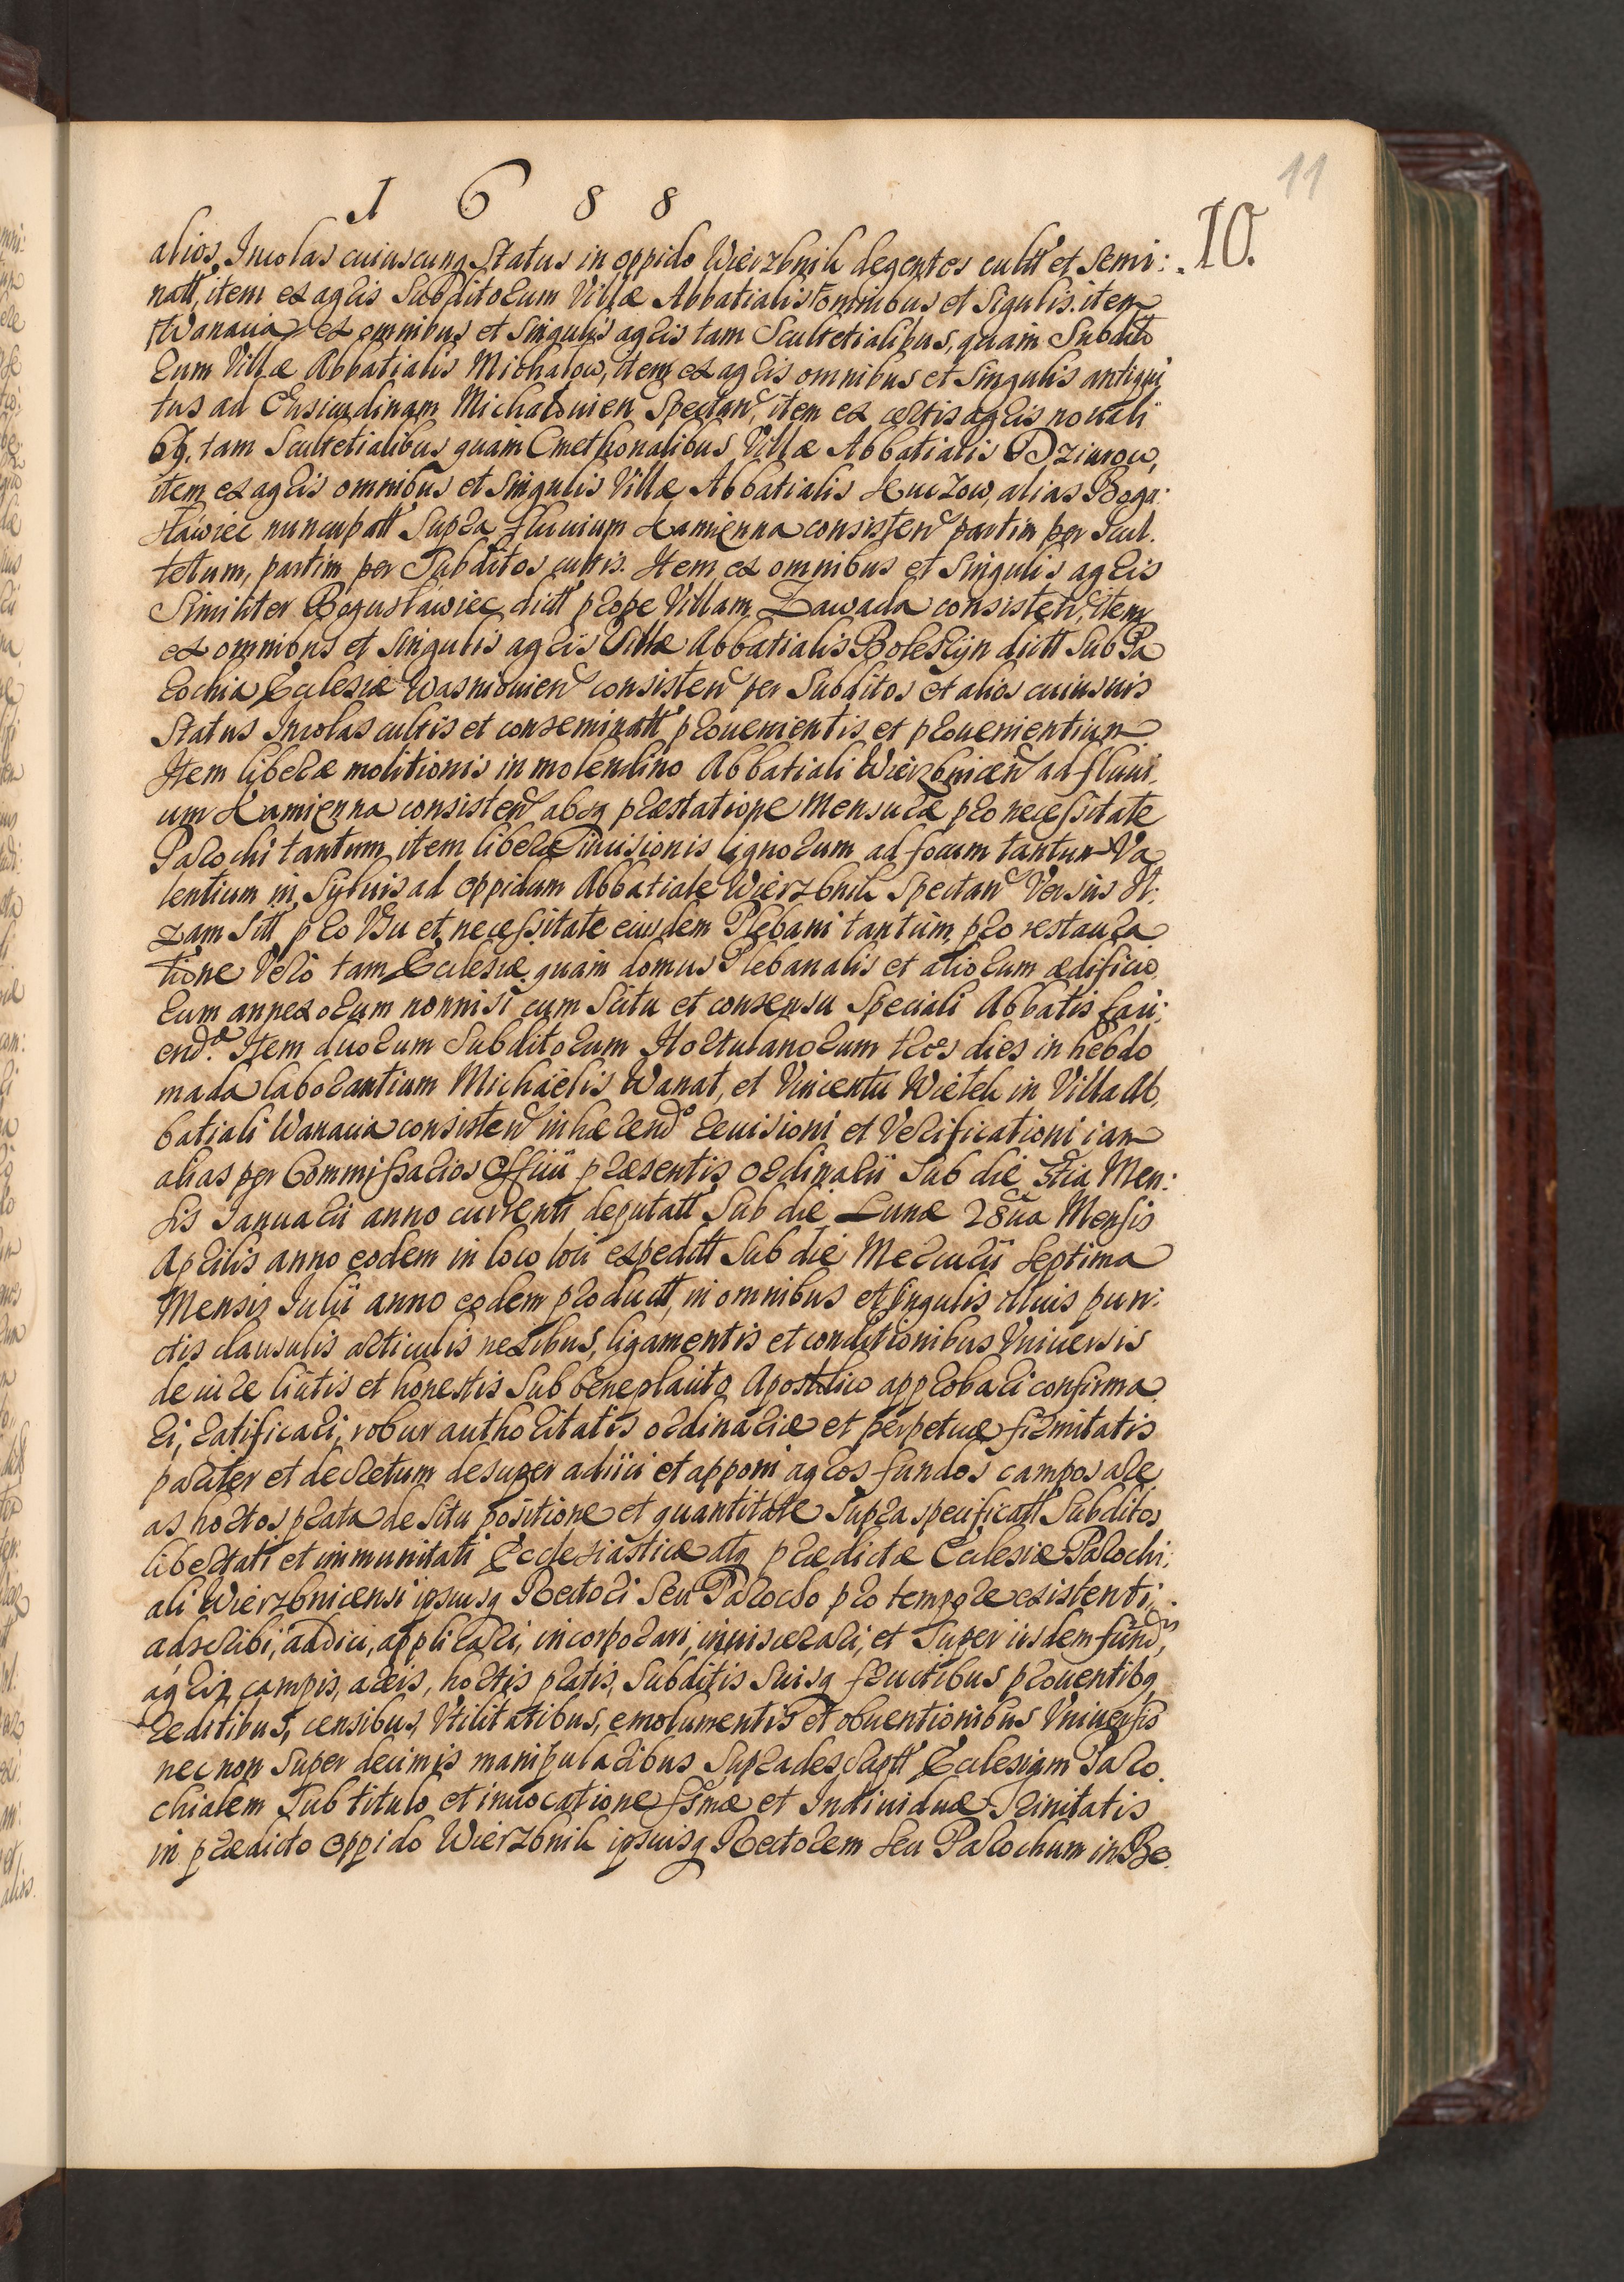 11
1 6 8 8
10.
alios Incolas cuiuscunq Status in oppido Wierzbnik degentes cultt et semi:
natt, item ex agris Subditorum Villæ Abbatialis omnibus et sigulis. item
Wanacia ex omnibus et singulis agris tam Scultetialibus, quam Subdito
rum Villæ Abbatialis Michalow, item ex agris omnibus et singulis antiqui
tus ad Michalouien spectan, item ex certis agris nouali
bq, tam Scultetialibus quam Cmethonalibus Villæ Abbatialis Dziurow,
item ex agris omnibus et singulis Villæ Abbatialis Kuczow, alias Bogu:
sławiec nuncupatt supra fluuium Kamięnna consisten partim per Scul.
tetum, partim per Subditos cultis. Item ex omnibus et singulis agris
similiter Bogusławiec dictt prope Villam Zawada consisten, item
ex omnibus et singulis agris Villæ Abbatialis Boleszyn dictt sub Pa
rochia Ecclesiæ Wasniouien consisten per Subditos et alios cuiusuis
Status Incolas cultis et conseminatt prouenientis et prouenientium
Item liberæ molitionis in molendino Abbatiali Wierzbnicen ad fluui,
um Kamięnna consisten absq præstatione mensuræ pro necessitate
Parochi tantum, item liberæ inuisionis lignorum ad focum tantum Va
lentium in syluis ad oppidum Abbatiale Wierzbnik spectan Versus It:
zam sitt pro Vsu et necessitate eiusdem Plebani tantum, pro restaura
tione Vero tam Ecclesiæ quam domus Plebanalis et aliorum ædificio
rum annexorum nonnisi cum scitu et consensu speciali Abbatis faci:
end. Item duorum Subditorum Hortulanorum tres dies in hebdo
mada laborantium Michaelis Wanat, et Vincentii Wietek in Villa Ab,
batiali Wanacia consisten inhærendo reuisioni et Verificationi iam
alias per Commissarios Officii præsentis ordinarii sub die 3tia Men:
sis Ianuarii anno currenti deputatt sub die Lunæ 28ua Mensis
Aprilis anno eodem in loco loci expeditt sub die Mercurii septima
Mensis Iulii anno eodem productt, in omnibus et singulis illius pun:
ctis clausulis articulis nexibus, ligamentis et conditionibus Vniuersis
de iure licitis et honestis sub beneplacito Apostolico approbari confirma
ri, ratificari, robur authoritatis ordinariæ et perpetuæ firmitatis
pariter et decretum desuper adiici et apponi agros fundos campos are
as hortos prata de situ positione et quantitate supra specificatt Subditos
libertati et immunitati Ecclesiasticæ atq prædictæ Ecclesiæ Parochi:
ali Wierzbnicensi ipsiusq Rectori seu Parocho pro tempore existenti,
adscribi, addici, applicari, incorporari, inuiscerari, et super iisdem fund,
agris, campis, areis, hortis pratis, subditis suisq fructibus prouentibq
reditibus, censibus, Vtilitatibus, emolumentis et obuentionibus Vniuersis
nec non super decimis manipularibus supradescriptt Ecclesiam Paro
chialem sub titulo et inuocatione ssmæ et Indiuiduæ Trinitatis
in prædicto oppido Wierzbnik ipsiusq Rectorem seu Parochum in Be